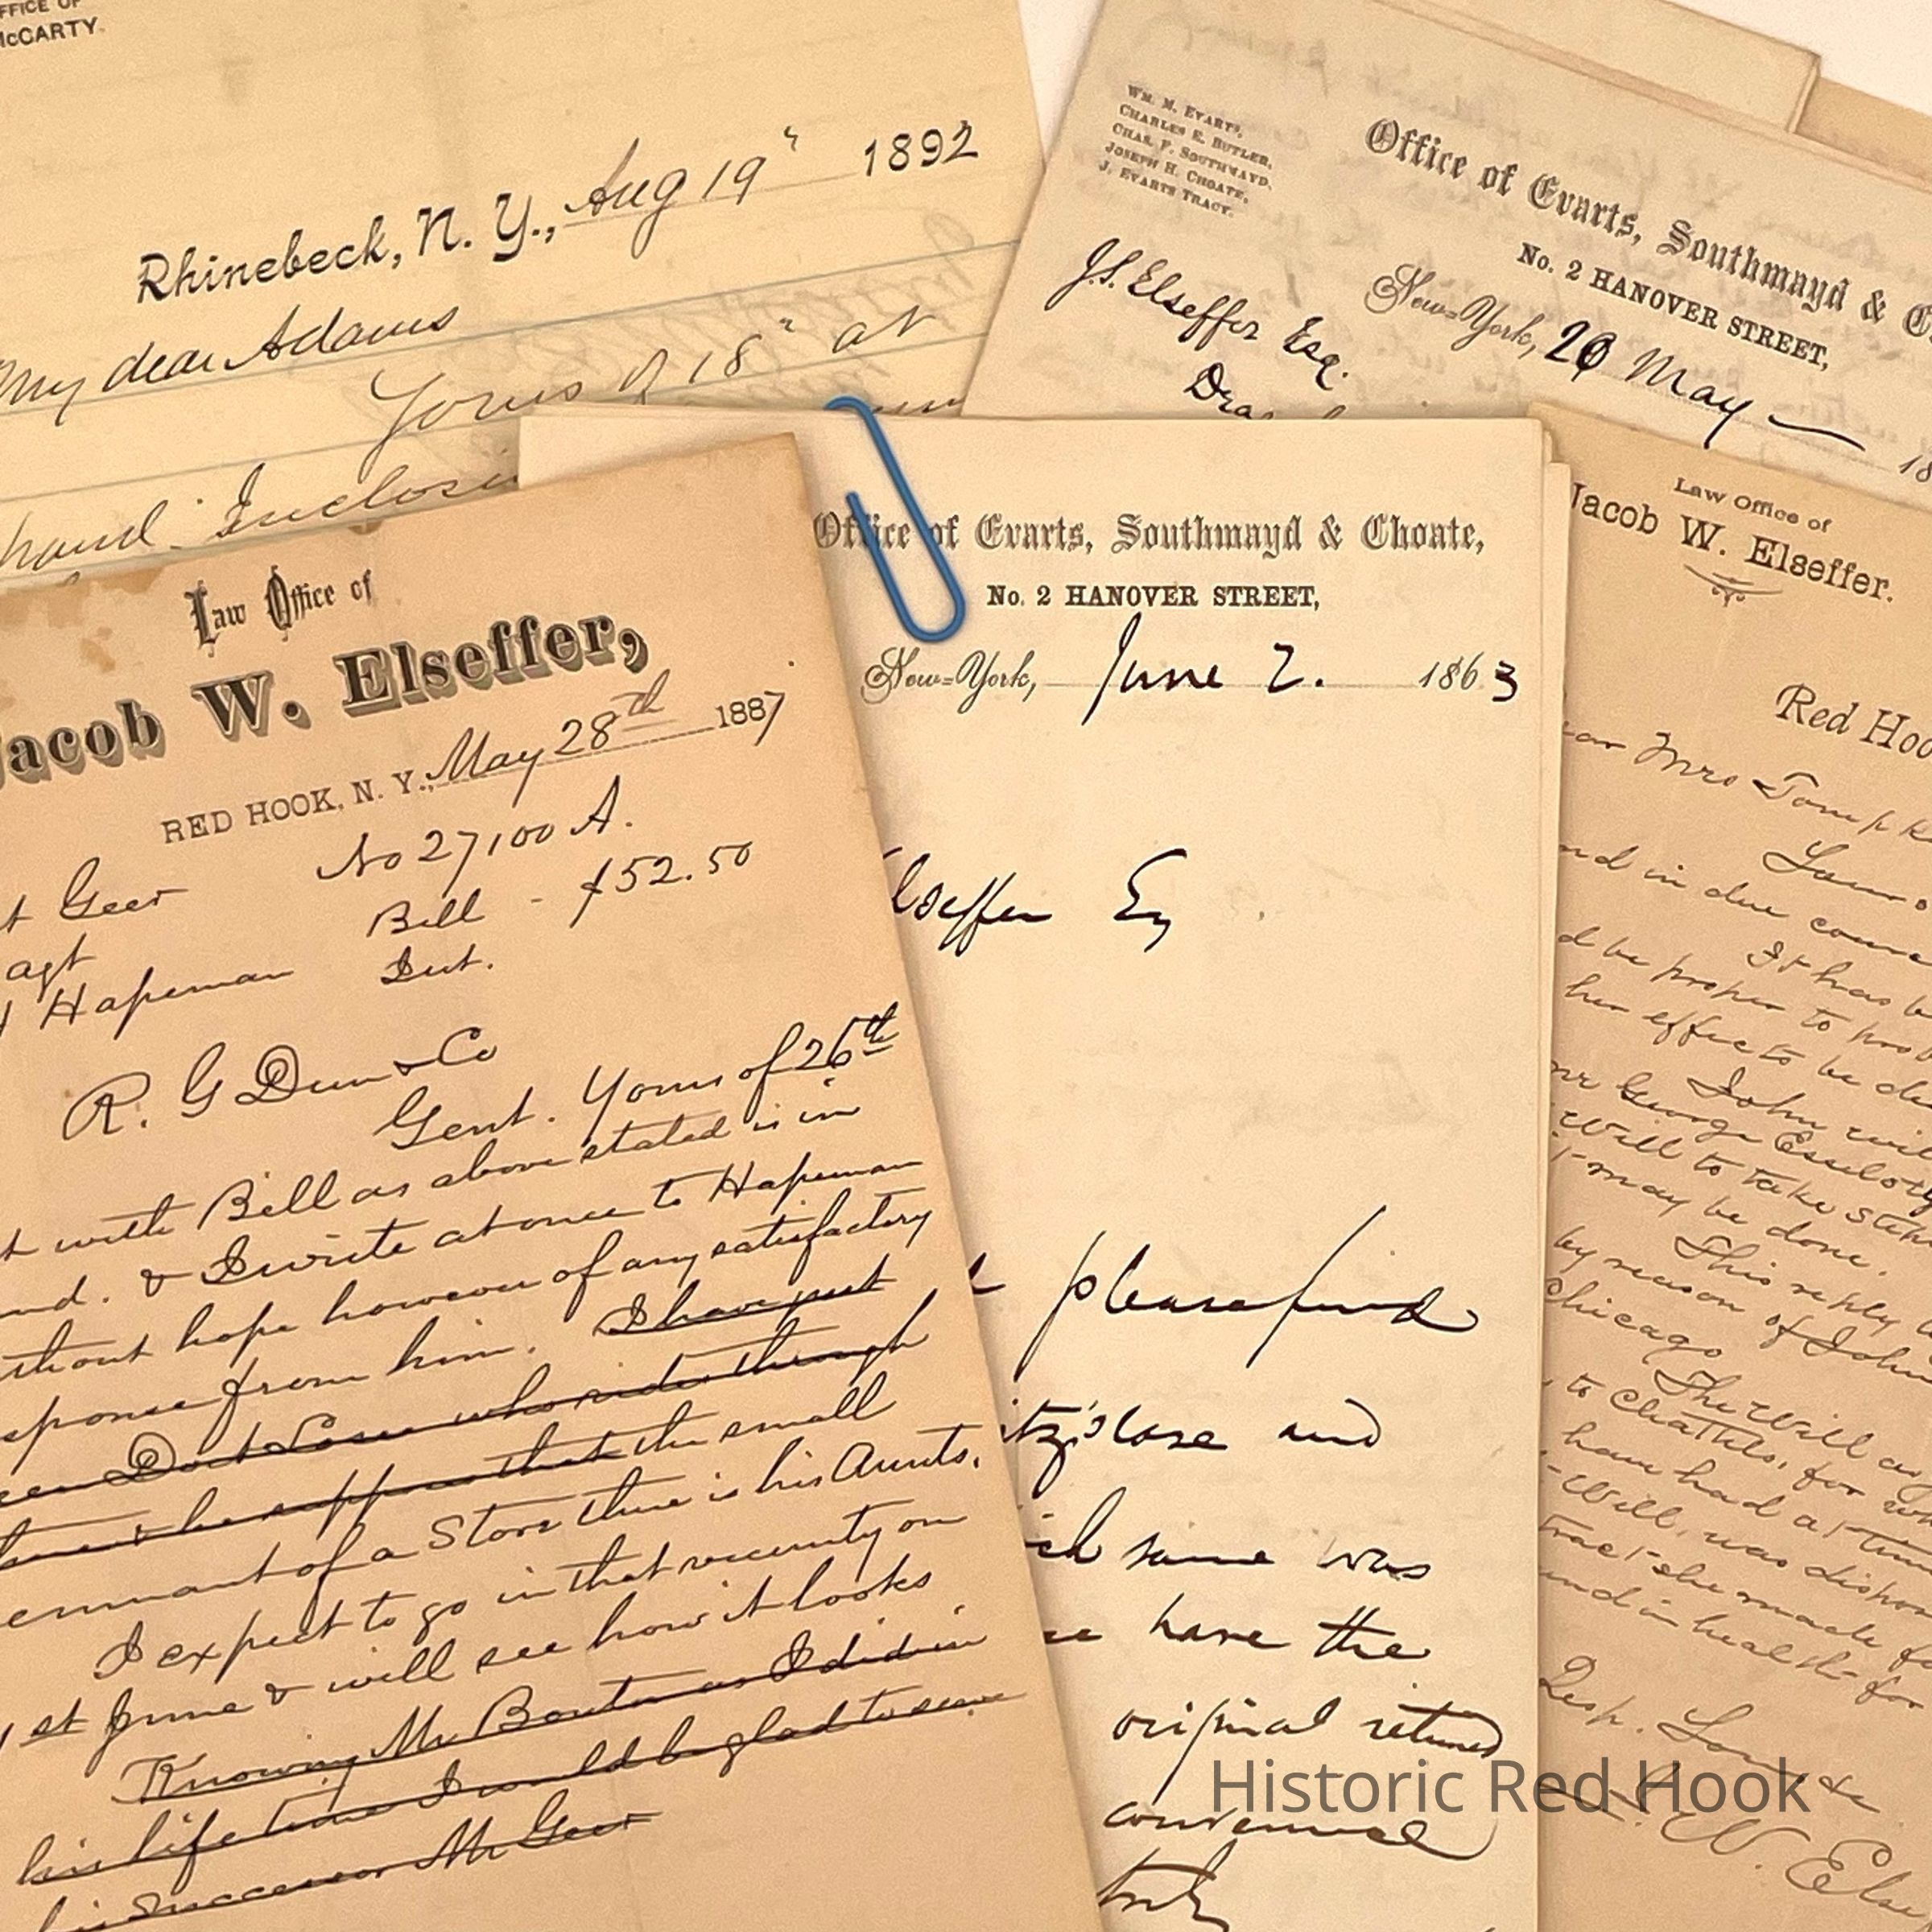 FFICE OF
McCARTY.
Rhinebeck, N. Y., Aug 19" 1892
My dear Adams
Yours of 18" at
hand. Inclosi
WM. M. EVARTS,
CHARLES E. BUTLER,
CHAS. F. SOUTHMAYD,
JOSEPH H. CHOATE,
J. EVARTS TRACY.
Office of Evarts, Southmayd & C
No. 2 HANOVER STREET,
New=York, 20 May 18
J.S. Elseffer Esq.
Law Office of
Jacob W. Elseffer,
RED HOOK, N. Y., May 28th 1887
No 27100 A.
t Geer
Bill - $52.50
agt
Hapeman
R. G Dun & Co
Gent. Yours of 26th
t with Bill as above stated is in
nd. & I write at once to Hapeman
thout hope however of any satisfactory
sponse from him. I have just
een Doct Losee who rides through
the small
emnant of a Store there is his Aunts.
I expect to go in that vicinity on
1st June & will see how it looks
Knowing Mr Bouton as I did in
his life time I would be glad to serve
his Successor Mr Geer
Office of Evarts, Southmayd & Choate,
No. 2 HANOVER STREET,
New=York, June 2. 1863
lseffer Esq
please find
itz's case and
ich same was
have the
original returned
convenience
truly
Law Office of
Jacob W. Elseffer.
Red Hoo
ear Mrs Tompk
nd in due course
It has b
d be proper to
her effects to be
John will
Mr George Esselsty
Will to take
may be done.
This reply
by reason of John
Chicago
The Will as
to Chattels, for
have had a
Will, was
she made
and in health for
Resp. Yours &c
J. W. Else
Historic Red Hook